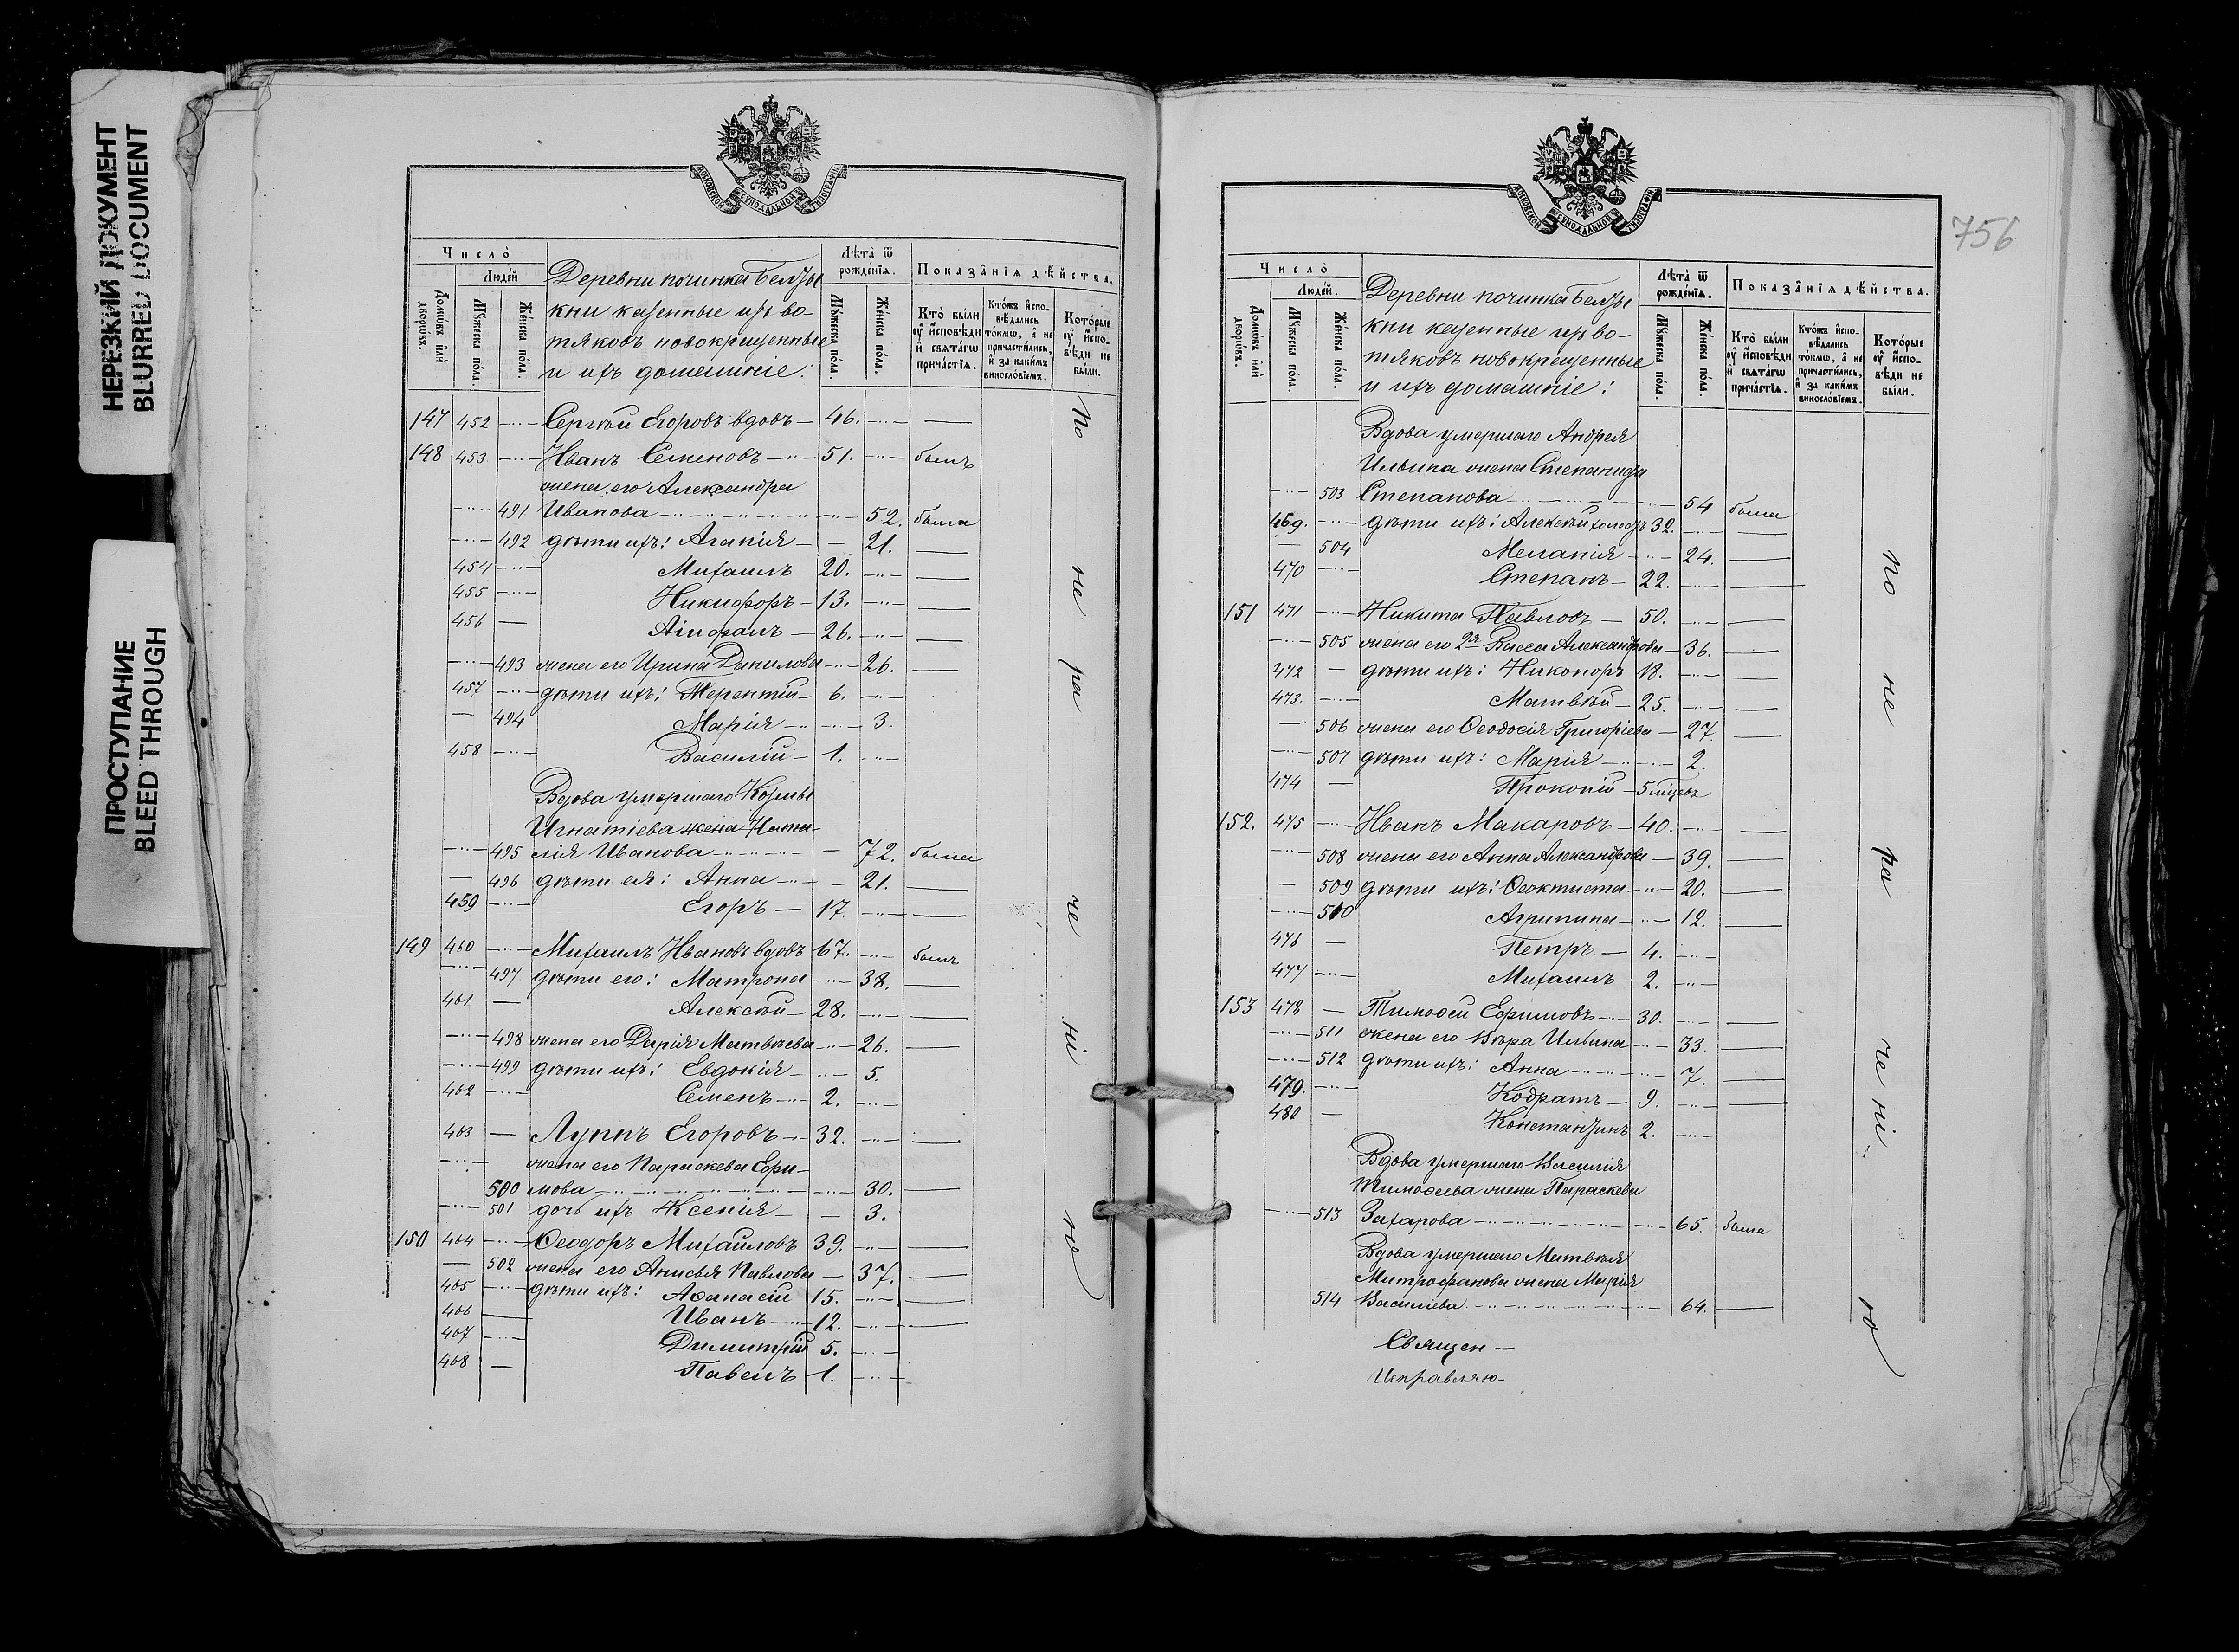 НЕРЕЗКИЙ ДОКУМЕНТ
BLURRED DOCUMENT
ПРОСТУПАНИЕ
BLEED THROUGH
МОСКОВСКОЙ СѴНОДАЛЬНОЙ ТИПОГРАФІИ
Число̀
Людей
Домѡвъ и҆лѝ дворѡ́въ.
Мꙋ́жеска по́ла.
Же́нска по́ла.
Деревни починка Белзы
кни казенные изъ во-
тяковъ новокрещенные
и ихъ домашніе:
Лѣ́та ѿ рожде́нїѧ.
Мꙋ́жеска по́ла.
Же́нска по́ла.
Показа̑нїѧ дѣ́йства.
Кто̀ бы́ли оу҆ и҆сповѣди и҆ свѧта́гѡ прича́стїѧ.
Кто́жъ и҆сповѣ́дались то́кмѡ, а҆ не причасти́лись, и҆ за каки́мъ винослове́мъ.
Кото́рые оу҆ и҆сповѣди не бы́ли.
147 452 —··— Сергѣй Егоровъ вдовъ — 46. —··— —
148 453 —··— Иванъ Семеновъ —··— 51. —··— былъ
жена его Александра
—··— 491 Иванова —··— 52. была
—··— 492 дѣти ихъ: Агапія — — 21. —
454 —··— Михаилъ 20. —··— —
455 —··— Никифоръ — 13. —··— —
456 — Аифалъ — 26. —··— —
—··— 493 жена его Ирина Данилова —··— 26. —
457 —··— дѣти ихъ: Терентій — 6. —··—
— 494 Марія —··— 3.
458 —··— Василій — 1. —··—
Вдова умершаго Козмы
Игнатіева жена Ната-
—··— 495 лія Иванова —··— — 72. была
— 496 дѣти ея: Анна —··— — 21. —
459 —··— Егоръ — 17. —··— —
149 460 —··— Михаилъ Ивановъ вдовъ 67. —··— былъ
—··— 497 дѣти его: Матрона —··— 38. —
461 — Алексѣй — 28. —··— —
—··— 498 жена его Дарія Матвѣева —··— 26. —
—··— 499 дѣти ихъ: Евдокія —··— 5.
462 —··— Семенъ —··— 2. —··—
463 — Луппъ Егоровъ —··— 32. —··— —
—··— жена его Параскева Ефи-
500 мова —··— 30. —
—··— 501 дочь ихъ Ксенія — — 3.
150 464 —··— Ѳеодоръ Михайловъ 39. —··— —
— 502 жена его Анисья Павлова — 37. —
465 —··— дѣти ихъ: Аѳанасій 15. —··— —
466 — Иванъ —··— 12. —··— —
467 —··— Димитрій 5. —··—
468 — Павелъ — 1. —··—
по не ра че ні ю
756
МОСКОВСКОЙ СѴНОДАЛЬНОЙ ТИПОГРАФІИ
Число̀
Людей.
Домѡвъ и҆лѝ дворѡ́въ.
Мꙋ́жеска по́ла.
Же́нска по́ла.
Деревни починка Белзы
кни казенные изъ во-
тяковъ новокрещенные
и ихъ домашніе:
Лѣ́та ѿ рожде́нїѧ.
Мꙋ́жеска по́ла.
Же́нска по́ла.
Показа̑нїѧ дѣ́йства.
Кто̀ бы́ли оу҆ и҆сповѣди и҆ свѧта́гѡ прича́стїѧ.
Кто́жъ и҆сповѣ́дались то́кмѡ, а҆ не причасти́лись, и҆ за каки́мъ винослове́мъ.
Кото́рые оу҆ и҆сповѣди не бы́ли.
Вдова умершаго Андрея
Ильина жена Степанида
—··— 503 Степанова —··— 54 была
469. —··— дѣти ихъ: Алексѣй холостъ 32. —··— —
— 504 Меланія —··— 24. —
470 —··— Степанъ — 22. —··— —
151 471 —··— Никита Павловъ — 50. —··— —
—··— 505 жена его 2я Васса Александрова — 36. —
472 — дѣти ихъ: Никоноръ 18. —··— —
473. —··— Матвѣй — 25. —··— —
— 506 жена его Ѳеодосія Григорієва — 27. —
—··— 507 дѣти ихъ: Марія —··— 2.
474 — Прокопій — 5 мѣсяцевъ
152. 475 —··— Иванъ Макаровъ — 40. —··— —
—··— 508 жена его Анна Александрова — 39. —
— 509 дѣти ихъ: Ѳеоктиста —··— 20. —
—··— 510 Агрипина —··— 12. —
476 — Петръ — 4. —··—
477 —··— Михаилъ 2. —··—
153 478 — Тимоѳей Ефимовъ —··— 30. —··— —
—··— 511 жена его Вѣра Ильина —··— 33. —
—··— 512 дѣти ихъ: Анна —··— 7. —
479. —··— Кодратъ — 9. —··— —
480 — Константинъ 2. —··—
Вдова умершаго Василія
Тимоѳеева жена Параскева
—··— 513 Захарова —··— 65. была
Вдова умершаго Матвѣя
Митрофанова жена Марія
514 Васильева —··— 64. —
по не ра че ні ю
Священ-
Исправляю-